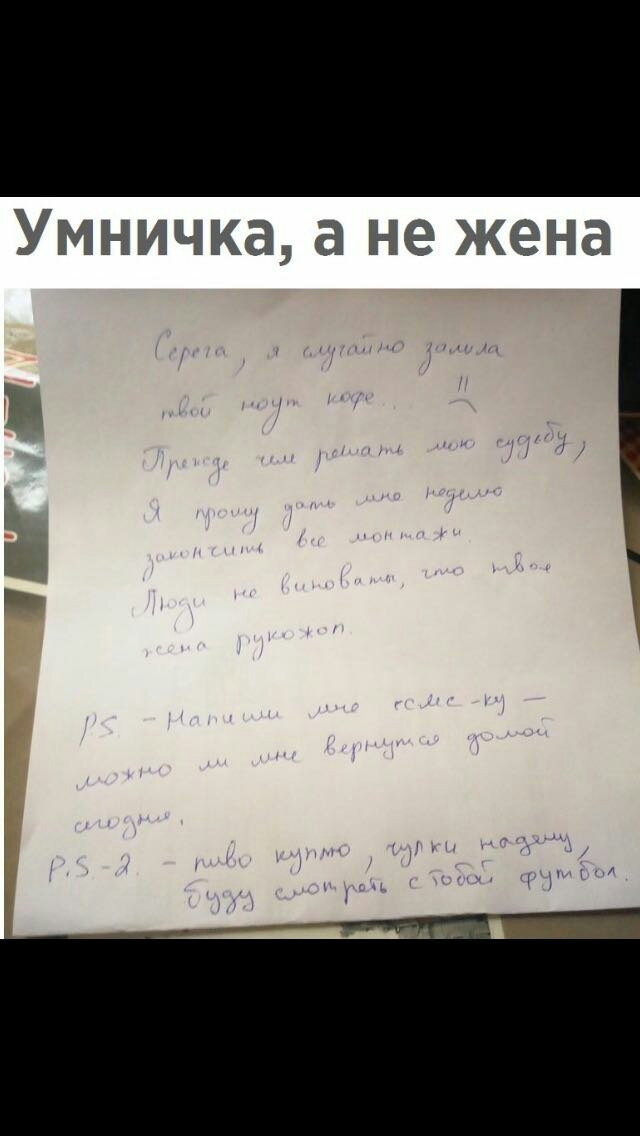 Умничка, а не жена
Серега, я случайно залила
твой ноут кофе...
Прежде чем решать мою судьбу,
Я прошу дать мне неделю
закончить все монтажи.
Люди не виноваты, что твоя
жена рукожоп.
P.S. - Напиши мне смс-ку —
можно ли мне вернутся домой
сегодня.
P.S.-2. - пиво куплю, чулки надену,
буду смотреть с тобой футбол.